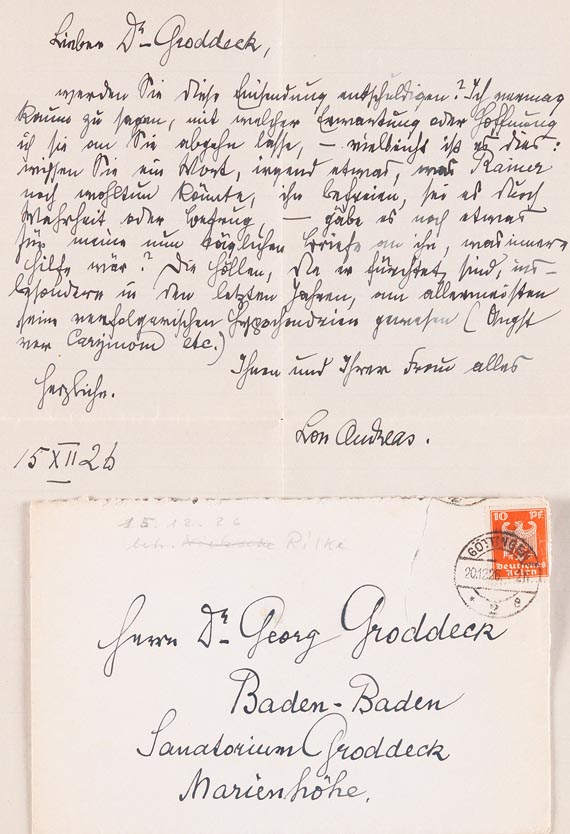 Lieber Dr. Groddeck,
werden Sie diese Einsendung entschuldigen? Ich vermag
kaum zu sagen, mit welcher Erwartung oder Hoffnung
ich sie an Sie abgehn lasse, – vielleicht ist es dies:
wissen Sie ein Wort, irgend etwas, was Rainer
noch wohltun könnte, ihn befreien, sei es durch
Wahrheit oder Betrug – gäbe es noch etwas
für meine nun täglichen Briefe an ihn, was innere
Hilfe wär? Die Höllen, die er fürchtet, sind, ins-
besondere in den letzten Jahren, am allermeisten
seine verfolgerischen Hypochondrien gewesen (Angst
vor Carzinom etc.)
Ihnen und Ihrer Frau alles
Herzliche.
Lou Andreas.
15 XII 26
15.12.26
betr. Rilke
10 Pf.
Deutsches
Reich
GÖTTINGEN
20.12.26
* 2 e
Herrn Dr. Georg Groddeck
Baden-Baden
Sanatorium Groddeck
Marienhöhe.